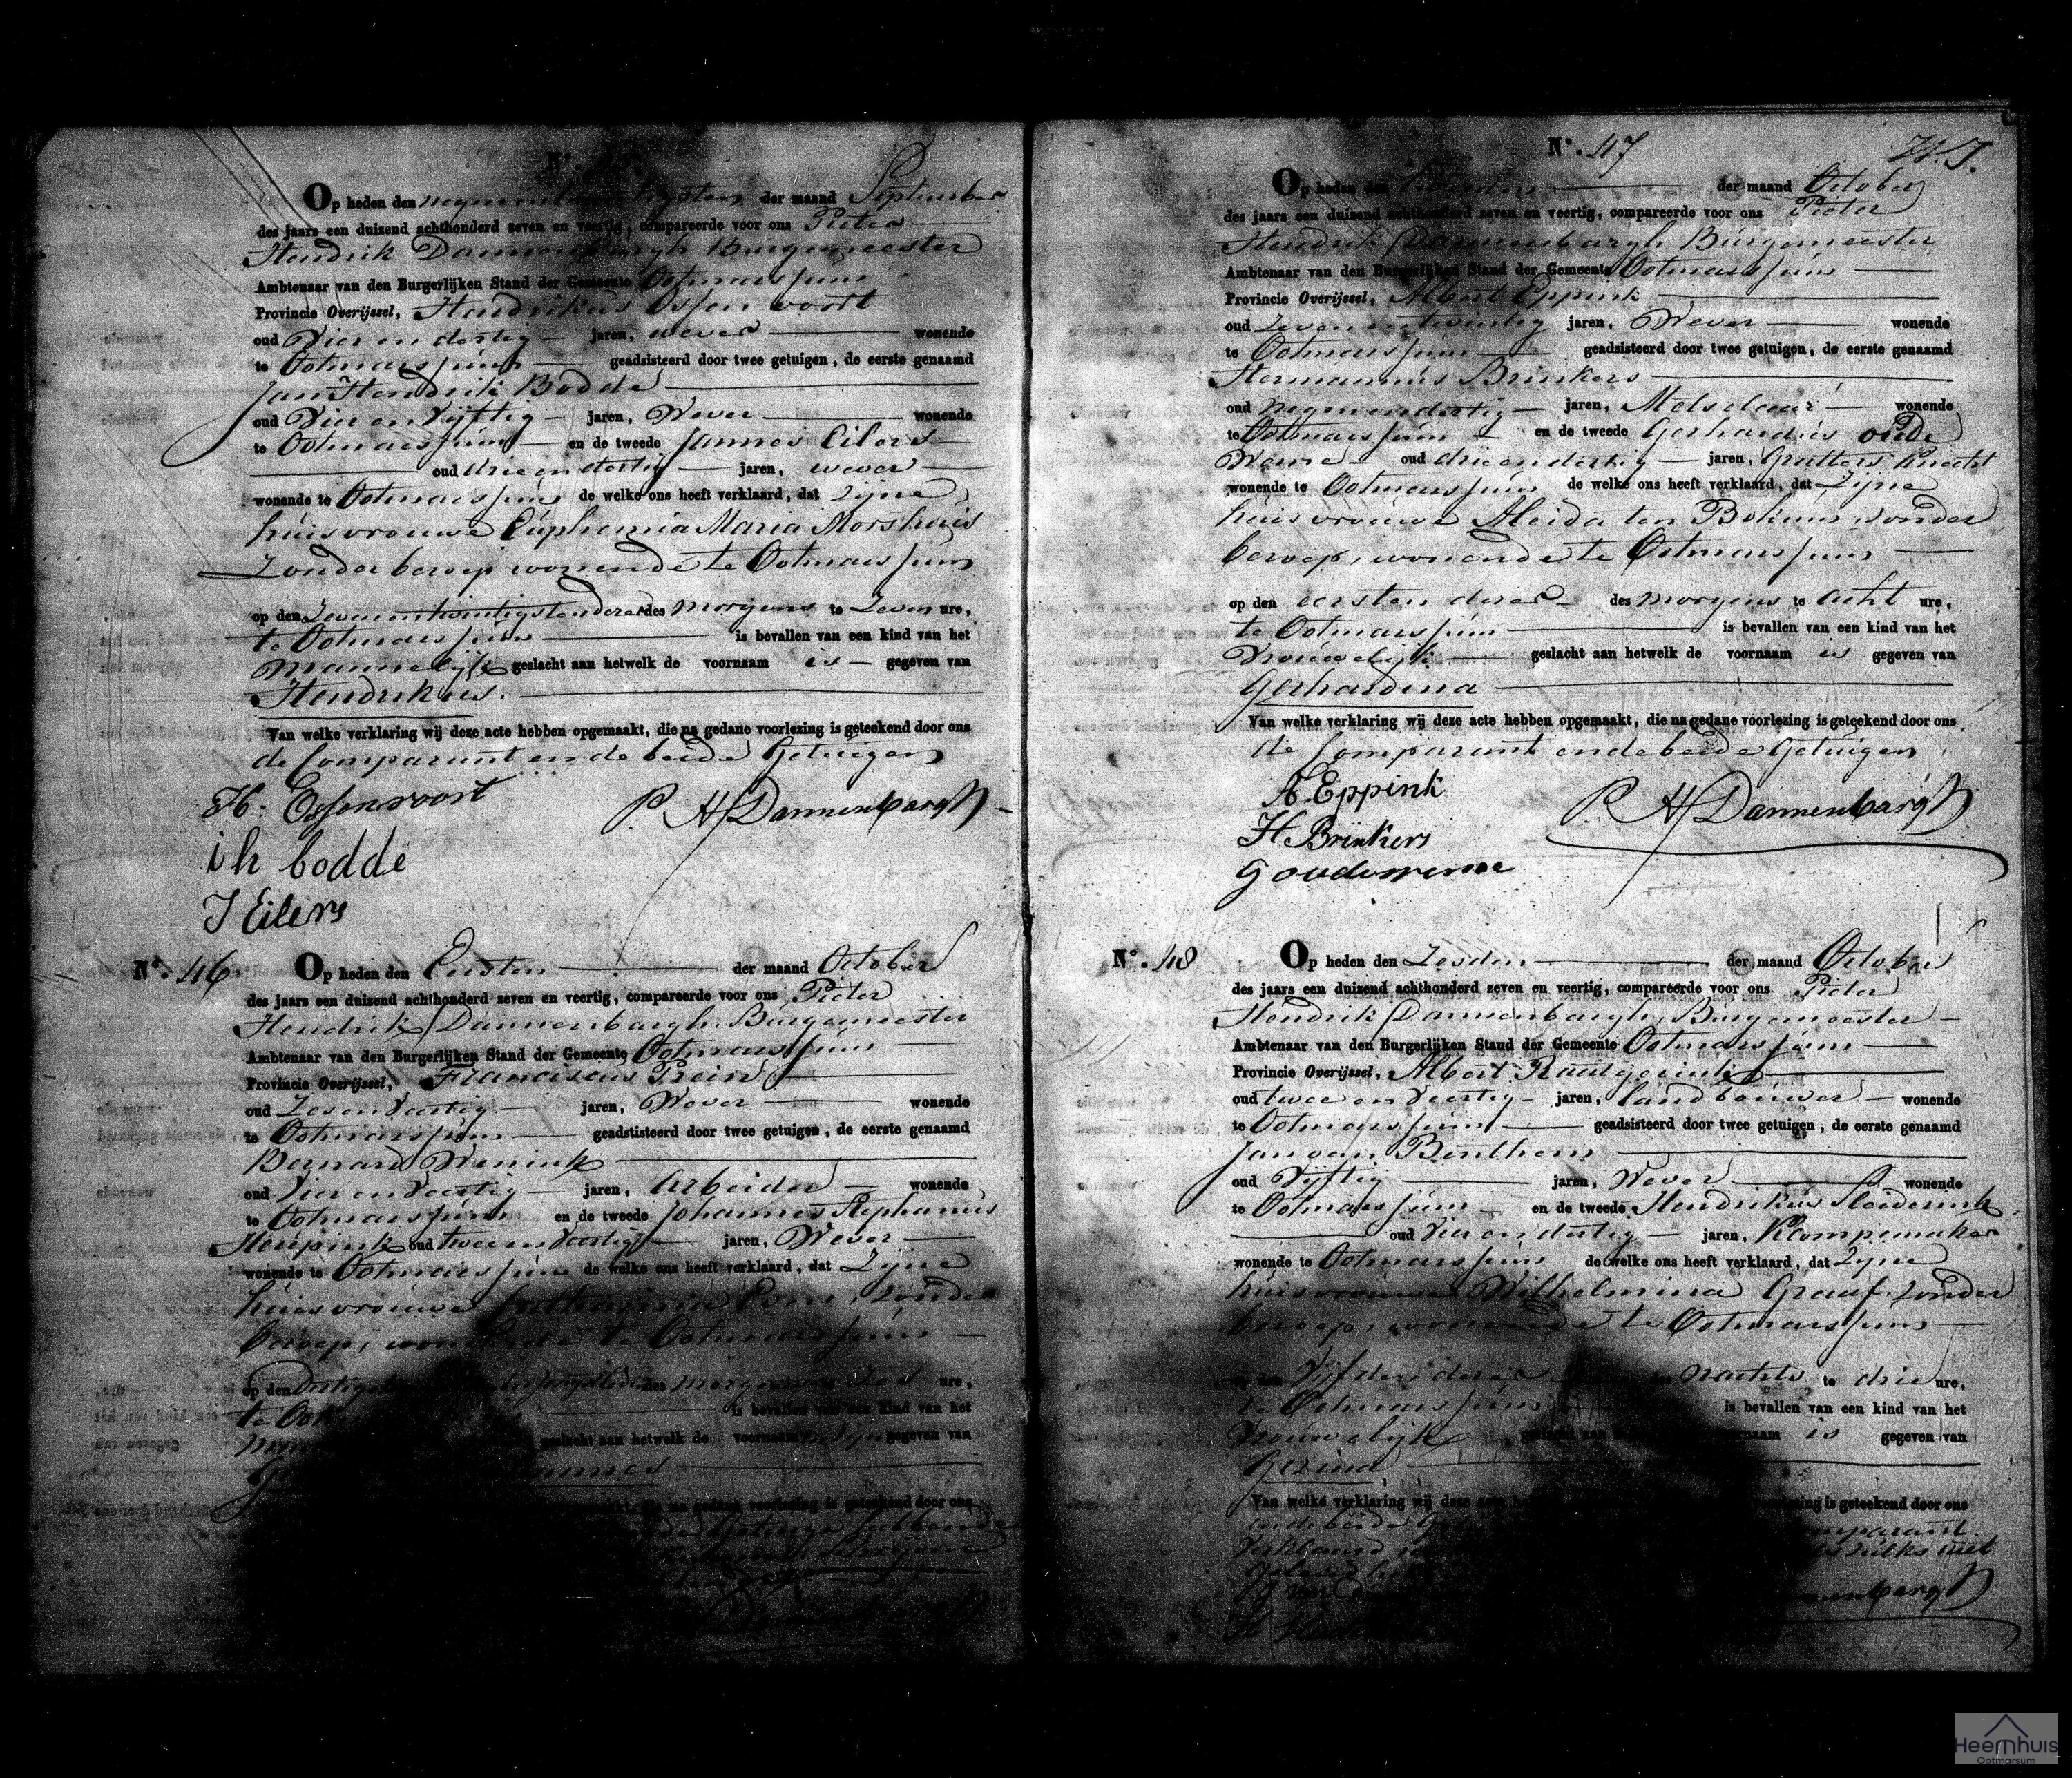 No.
Op heden den negenentwintigsten der maand September
des jaars een duizend achthonderd zeven en veertig, compareerde voor ons Pieter
Hendrik Dannenbargh Burgemeester
Ambtenaar van den Burgerlijken Stand der Gemeente Ootmarssum
Provincie Overijssel, Hendrikus Essenvoort
oud Vier en dertig jaren, wever wonende
te Ootmarssum geadsisteerd door twee getuigen, de eerste genaamd
Jan Hendrik Bodde
oud Vier en Vijftig jaren, Wever wonende
te Ootmarssum en de tweede Jannes Eilers
oud drie en dertig jaren, wever
wonende te Ootmarssum de welke ons heeft verklaard, dat Zijne
huisvrouwe Euphemia Maria Morshuis
Zonder beroep wonende te Ootmarssum
op den Zevenentwintigsten dezer des morgens te Zeven ure,
te Ootmarssum is bevallen van een kind van het
Mannelijk geslacht aan hetwelk de voornaam is gegeven van
Hendrikus.
Van welke verklaring wij deze acte hebben opgemaakt, die na gedane voorlezing is geteekend door ons
de Comparant en de beide Getuigen
H: Essenvoort P. H. Dannenbargh
i h bodde
J Eilers
No. 46 Op heden den Eersten der maand October
des jaars een duizend achthonderd zeven en veertig, compareerde voor ons Pieter
Hendrik Dannenbargh Burgemeester
Ambtenaar van den Burgerlijken Stand der Gemeente Ootmarssum
Provincie Overijssel, Franciscus Prein
oud Zes en Veertig jaren, Wever wonende
te Ootmarssum geadstisteerd door twee getuigen, de eerste genaamd
Bernard Wenink
oud Vier en Veertig jaren, Arbeider wonende
te Ootmarssum en de tweede Johannes Stephanus
Heupink oud twee en Veertig jaren, Wever
wonende te Ootmarssum de welke ons heeft verklaard, dat Zijne
huisvrouwe Catharina Even, zonder
beroep, wonende te Ootmarssum
op den dertigsten des morgens te ure,
te is bevallen van een kind van het
geslacht aan hetwelk de voornaam gegeven van
na gedane voorlezing is geteekend door ons
de Getuige
No. 47
Op heden den der maand October
des jaars een duizend achthonderd zeven en veertig, compareerde voor ons Pieter
Hendrik Dannenbargh Burgemeester
Ambtenaar van den Burgerlijken Stand der Gemeente Ootmarssum
Provincie Overijssel, Albert Eppink
oud Zeven en twintig jaren, Wever wonende
te Ootmarssum geadsisteerd door twee getuigen, de eerste genaamd
Hermannus Brinkers
oud negen en dertig jaren, Metselaar wonende
te Ootmarssum en de tweede Gerhardus oude
Weme oud drie en dertig jaren, Grutters knecht
wonende te Ootmarssum de welke ons heeft verklaard, dat Zijne
huisvrouwe Aleida ten Bokum, zonder
beroep, wonende te Ootmarssum
op den eersten dezer des morgens te acht ure,
te Ootmarssum is bevallen van een kind van het
Vrouwelijk geslacht aan hetwelk de voornaam is gegeven van
Gerhardina
Van welke verklaring wij deze acte hebben opgemaakt, die na gedane voorlezing is geteekend door ons
de Comparant en de beide Getuigen
A. Eppink P. H. Dannenbargh
H Brinkers
G oudeweme
No. 48 Op heden den Zesden der maand October
des jaars een duizend achthonderd zeven en veertig, compareerde voor ons Pieter
Hendrik Dannenbargh, Burgemeester
Ambtenaar van den Burgerlijken Stand der Gemeente Ootmarssum
Provincie Overijssel, Albert Ruutgerink
oud twee en Veertig jaren, landbouwer wonende
te Ootmarssum geadsisteerd door twee getuigen, de eerste genaamd
Jan van Benthem
oud Vijftig jaren, Wever wonende
te Ootmarssum en de tweede Hendrikus Sleiderink
oud Vier en dertig jaren, Klompemaker
wonende te Ootmarssum de welke ons heeft verklaard, dat Zijne
huisvrouwe Wilhelmina Graaf, zonder
beroep, wonende te Ootmarssum
Vijfden dezer nachts te drie ure,
te Ootmarssum is bevallen van een kind van het
Vrouwelijk geslacht aan voornaam is gegeven van
Gezina
Van welke verklaring wij deze acte is geteekend door ons
en de beide comparant
verklaard zulks niet
J van
Heemhuis
Ootmarsum